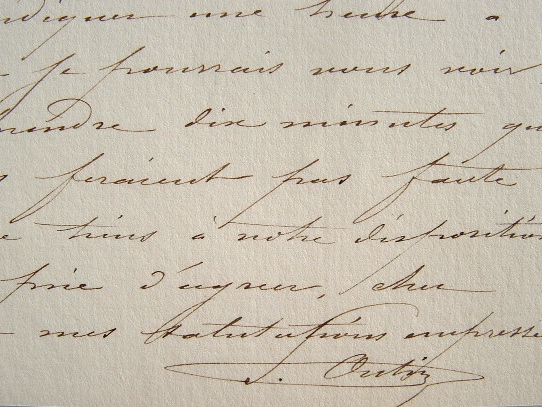 indiquer une heure à
je pourrais vous voir
prendre dix minutes qu
feraient pas faute
e tiens à votre disposition
prie d'agréer, cher
mes salutations empressé